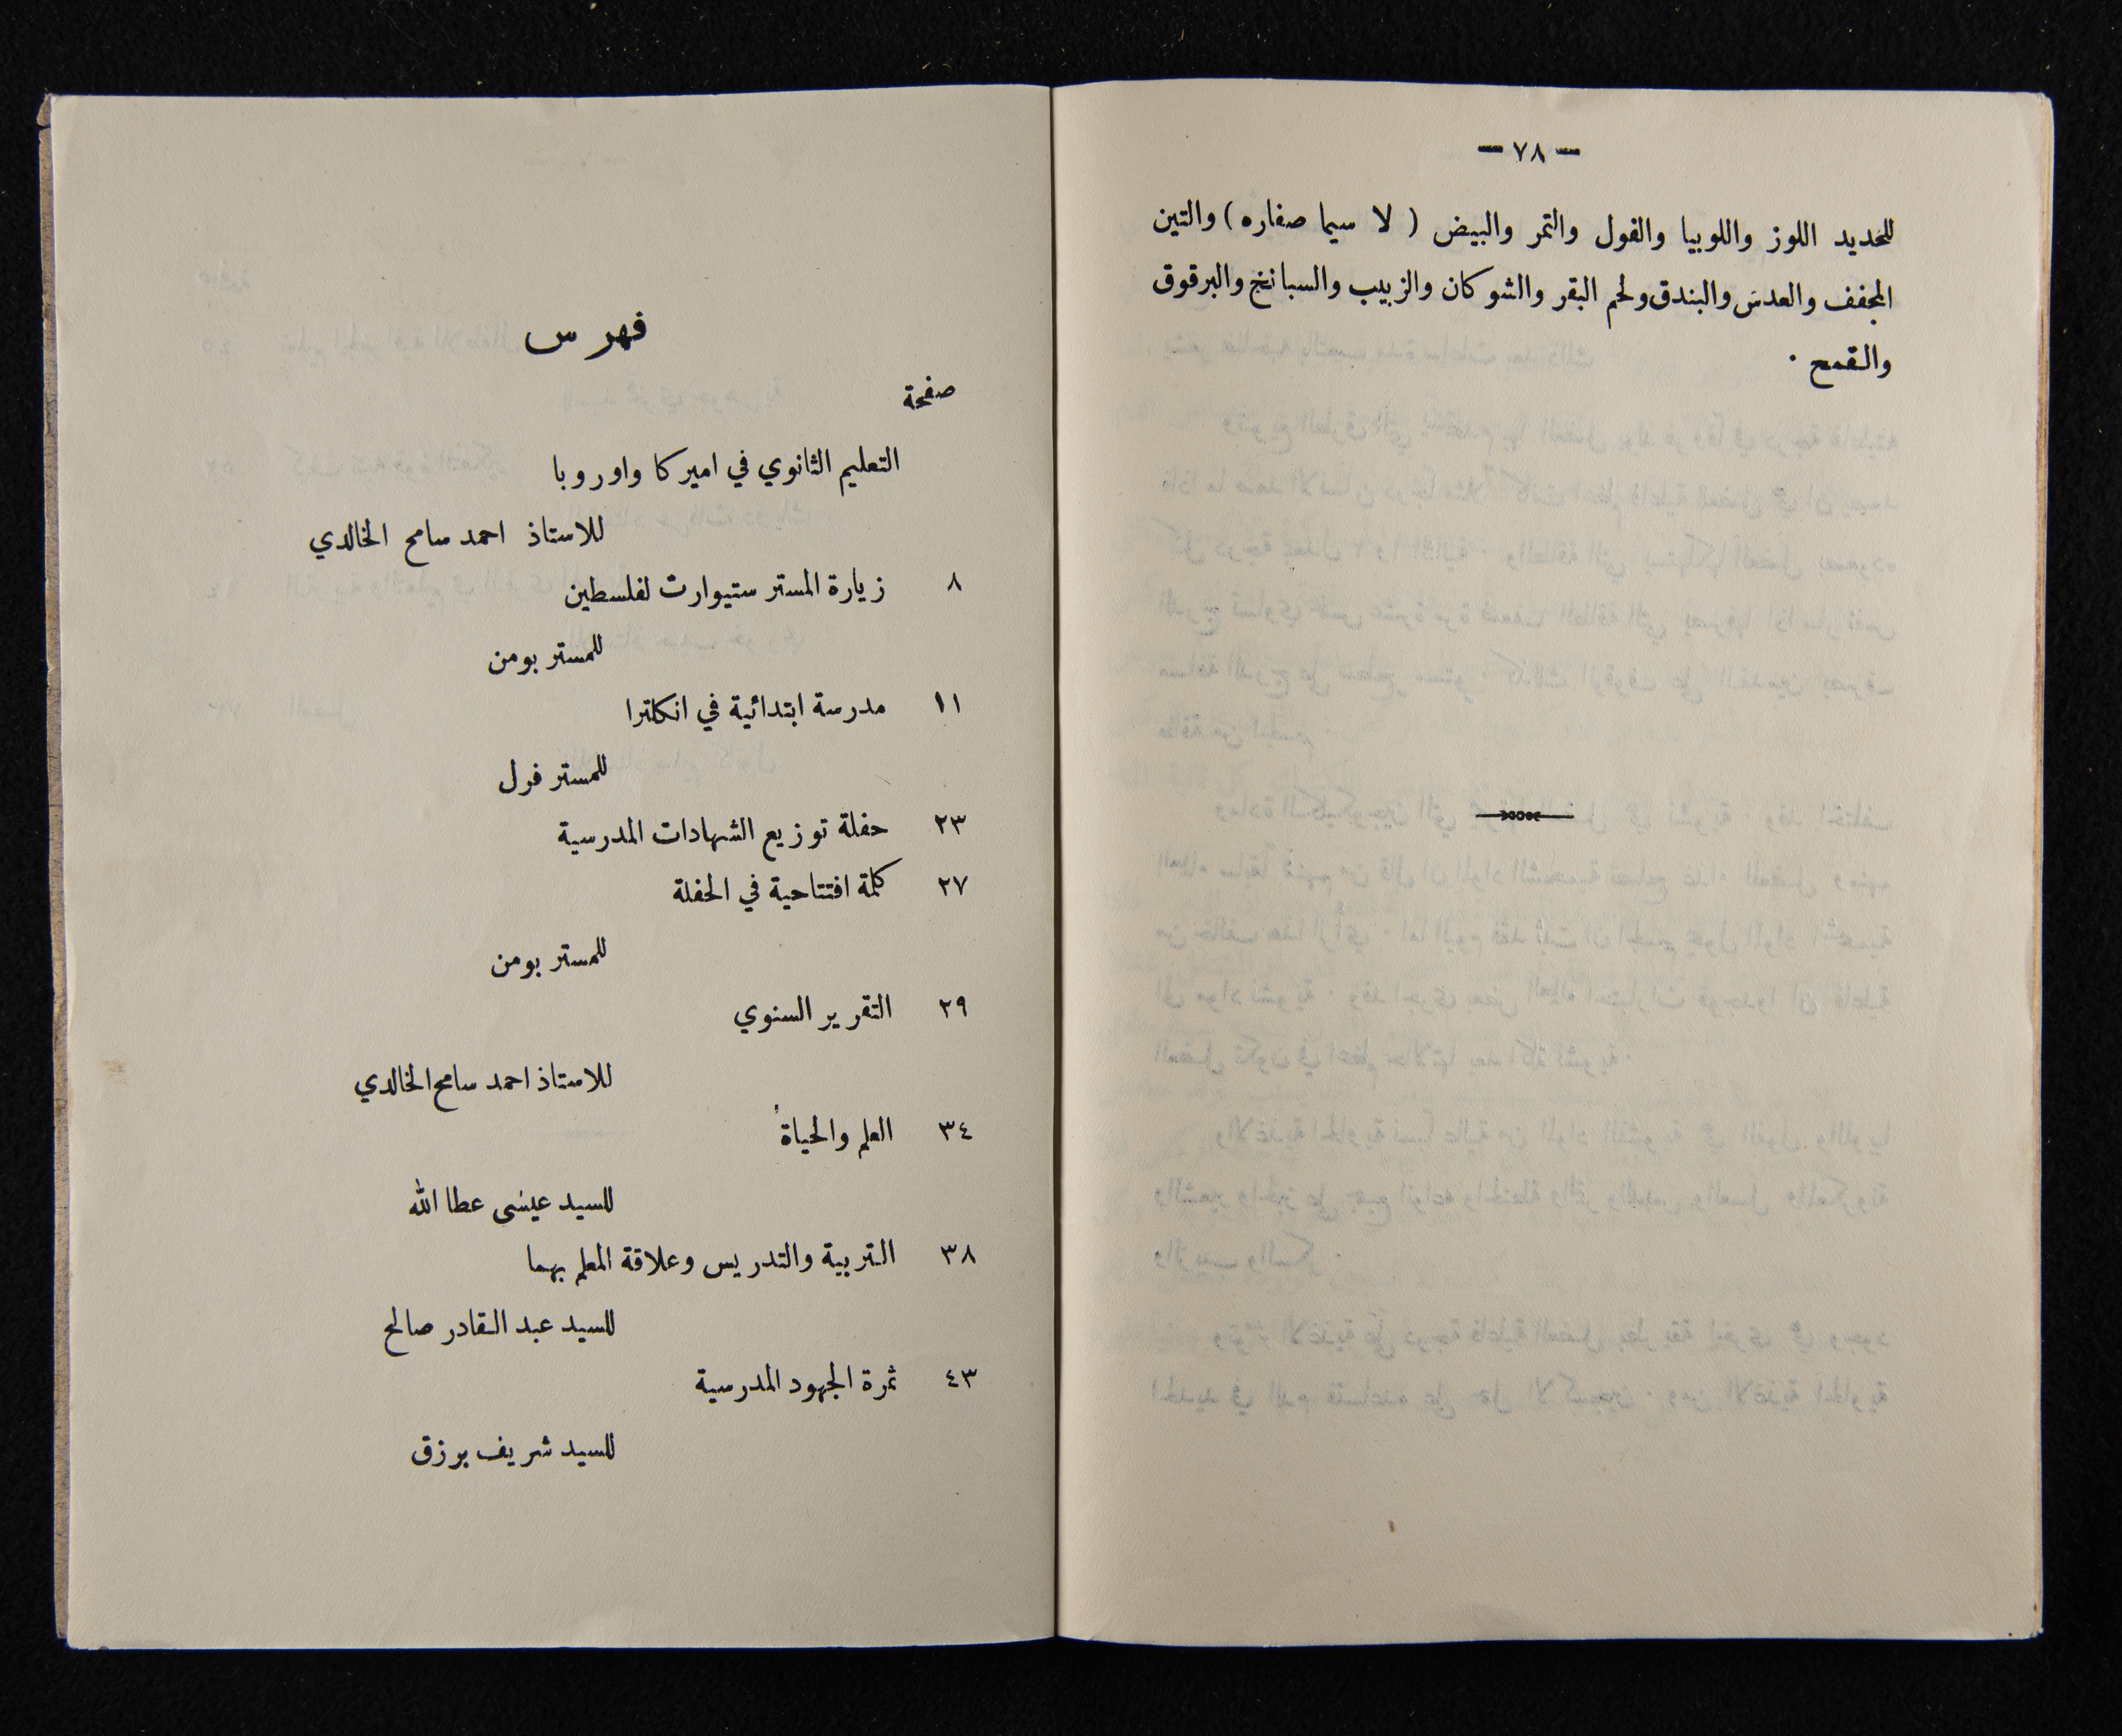 — ٧٨ —
للحديد اللوز واللوبيا والفول والتمر والبيض ( لا سيما صفاره ) والتين
المجفف والعدس والبندق ولحم البقر والشوكان والزبيب والسبانخ والبرقوق
والقمح ٠
فهرس
صفحة
التعليم الثانوي في اميركا واوروبا
للاستاذ احمد سامح الخالدي
٨ زيارة المستر ستيوارت لفلسطين
للمستر بومن
١١ مدرسة ابتدائية في انكلترا
للمستر فرل
٢٣ حفلة توزيع الشهادات المدرسية
٢٧ كلمة افتتاحية في الحفلة
للمستر بومن
٢٩ التقرير السنوي
للاستاذ احمد سامح الخالدي
٣٤ العلم والحياة
للسيد عيسى عطا الله
٣٨ التربية والتدريس وعلاقة المعلم بهما
للسيد عبد القادر صالح
٤٣ ثمرة الجهود المدرسية
للسيد شريف برزق